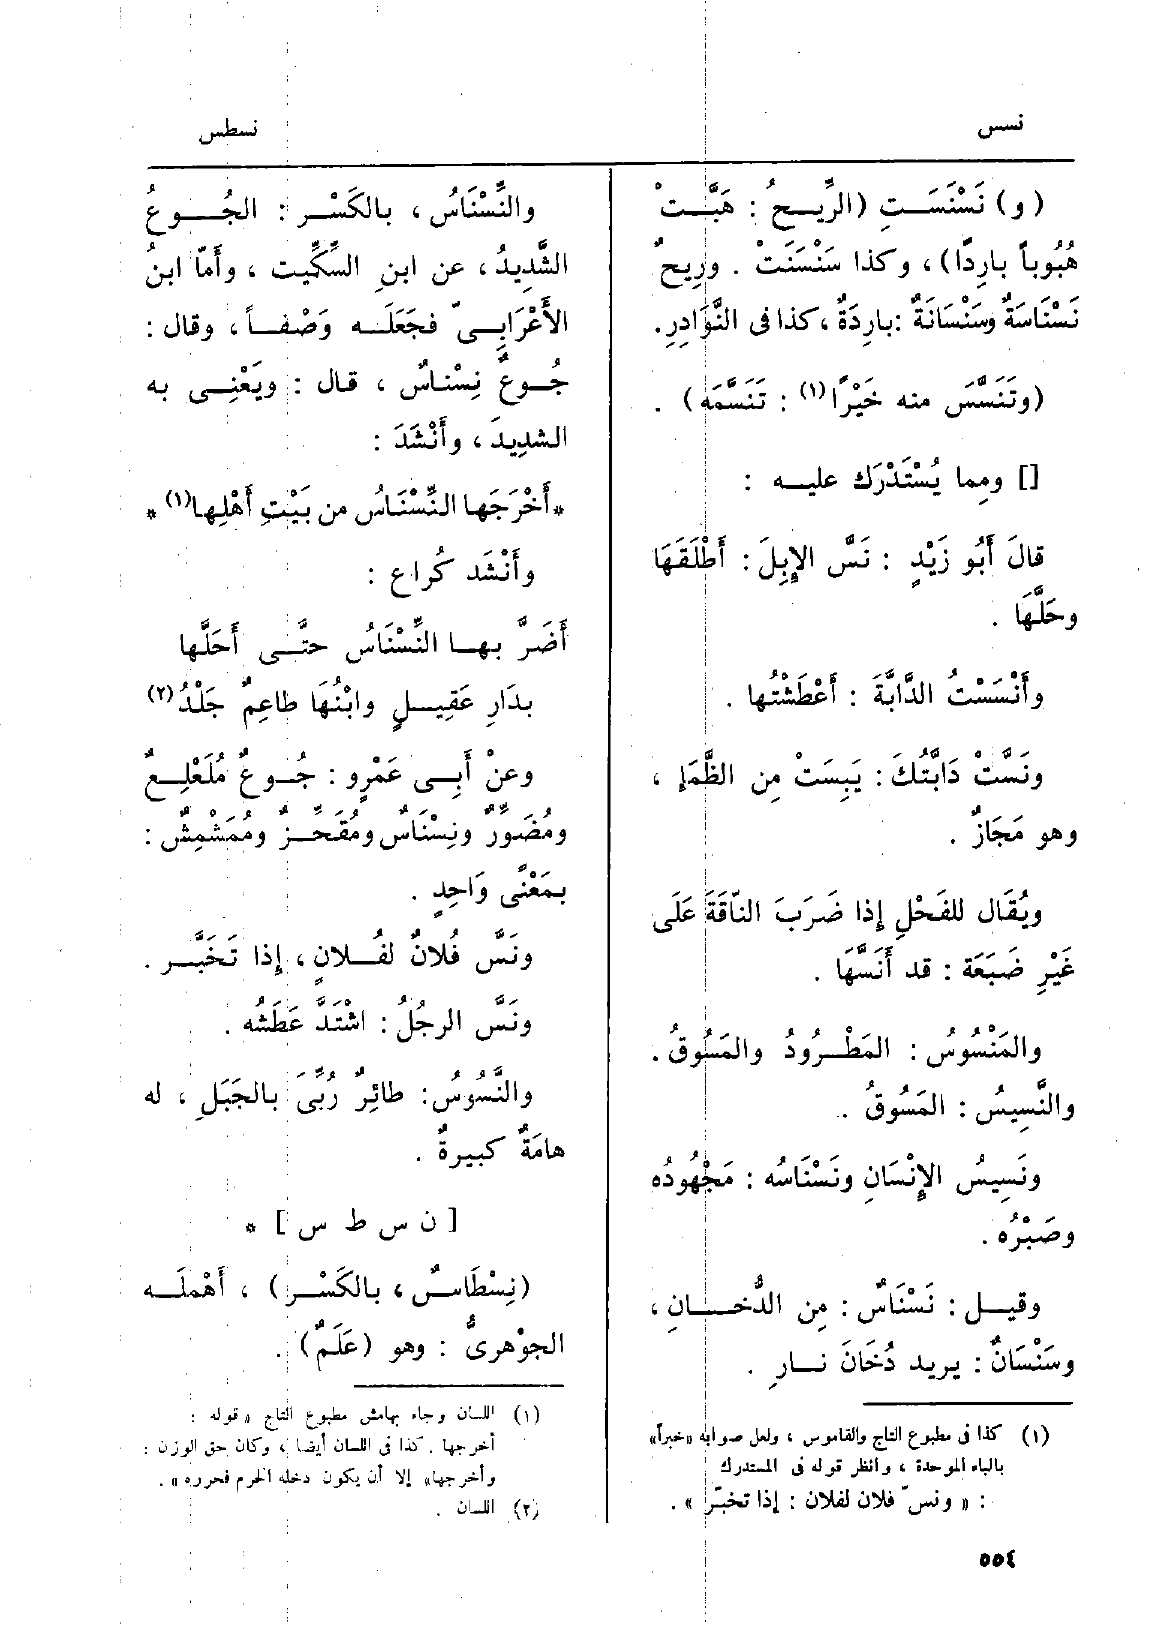 نسس
نسطس
(و) نَسْنَسَتِ (الرِّيحُ : هَبَّتْ
هُبُوباً بارِدًا)، وكذا سَنْسَنَتْ . ورِيحٌ
نَسْنَاسَةٌ وسَنْسَانَةٌ : بارِدَةٌ ، كذا فى النَّوَادِرِ.
(وتَنَسَّسَ منه خَيْرًا(١) : تَنَسَّمَه) .
[] ومِما يُسْتَدْرَك عليه :
قالَ أَبُو زَيْدٍ : نَسَّ الإِبِلَ : أَطْلَقَهَا
وحَلَّهَا .
وأَنْسَسْتُ الدَّابَّةَ : أَعْطَشْتُها .
ونَسَّتْ دَابَّتُكَ : يَبِسَتْ مِن الظَّمَإِ ،
وهو مَجَازٌ .
ويُقَال للفَحْلِ إِذا ضَرَبَ النّاقَةَ عَلَى
غَيْرِ ضَبَعَة : قد أَنَسَّهَا .
والمَنْسُوسُ : المَطْرُودُ والمَسُوقُ .
والنَّسِيسُ : المَسُوقُ .
ونَسِيسُ الإِنْسَانِ ونَسْنَاسُه : مَجْهُودُه
وصَبْرُه .
وقيل : نَسْنَاسٌ : مِن الدُّخَانِ ،
وسَنْسَانٌ : يريد دُخَانَ نارِ .
(١) كذا فى مطبوع التاج والقاموس ، ولعل صوابه «خبراً»
بالباء الموحدة ، وانظر قوله فى المستدرك
: « ونسّ فلان لفلان : إذا تخبّر » .
والنَّسْنَاسُ ، بالكَسْر : الجُوعُ
الشَّدِيدُ ، عن ابنِ السِّكِّيت ، وأَمّا ابنُ
الأَعْرَابِىّ فجَعَلَه وَصْفاً ، وقال :
جُوعٌ نِسْناسٌ ، قال : ويَعْنِى به
الشدِيدَ ، وأَنْشَدَ :
*أَخْرَجَها النِّسْنَاسُ من بَيْتِ أَهْلِها(١) *
وأَنْشَد كُراع :
أَضَرَّ بها النِّسْنَاسُ حتَّى أَحَلَّها
بدَارِ عَقِيلٍ وابْنُهَا طاعِمٌ جَلْدُ(٢)
وعنْ أَبِى عَمْرٍو : جُوعٌ مُلَعْلِعٌ
ومُضَوِّرٌ ونِسْنَاسٌ ومُقَحِّزٌ ومُمَشْمِشٌ :
بمَعْنًى وَاحِدٍ .
ونَسَّ فُلانٌ لفُلانٍ ، إِذا تَخَبَّر .
ونَسَّ الرجُلُ : اشْتَدَّ عَطَشُه .
والنَّسُوسُ : طائِرٌ رُبِّىَ بالجَبَلِ ، له
هامَةٌ كبيرةٌ .
[ ن س ط س ] *
(نِسْطَاسٌ ، بالكَسْرِ) ، أَهْملَه
الجوْهرىُّ : وهو (عَلَمٌ) .
(١) اللسان وجاء بهامش مطبوع التاج « قوله :
أخرجها . كذا فى اللسان أيضا ، وكان حق الوزن :
وأخرجها» إلا أن يكون دخله الخرم فحرره » .
(٢) اللسان .
٥٥٤